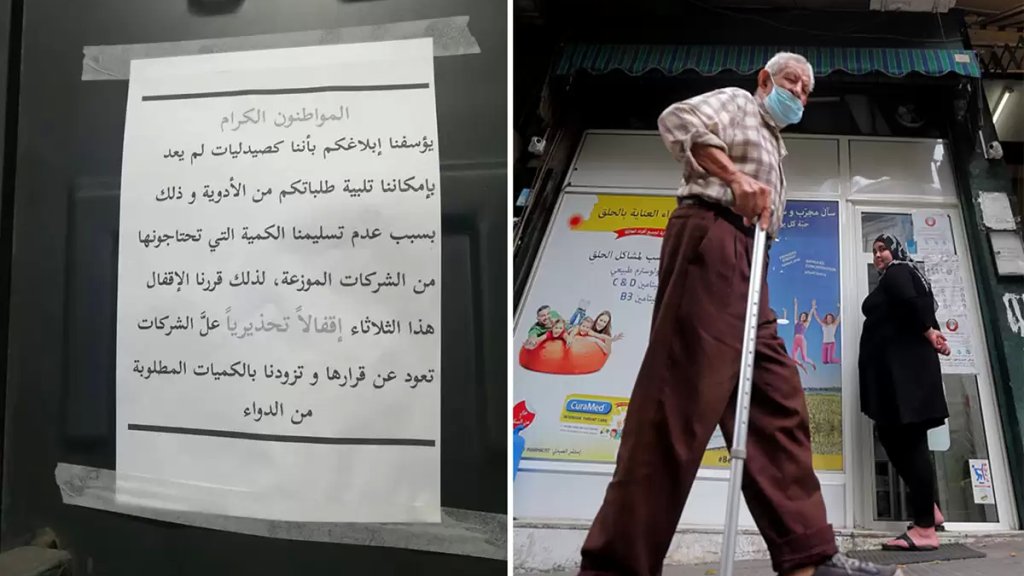 المواطنون الكرام
يؤسفنا إبلاغكم بأننا كصيدليات لم يعد
بإمكاننا تلبية طلباتكم من الأدوية و ذلك
بسبب عدم تسليمنا الكمية التي تحتاجونها
من الشركات الموزعة، لذلك قررنا الإقفال
هذا الثلاثاء إقفالاً تحذيرياً علَّ الشركات
تعود عن قرارها و تزودنا بالكميات المطلوبة
من الدواء
العناية بالحلق
سأل مجرّب و
لمشاكل الحلق
طبيعي
C & D
B3
CuraMed